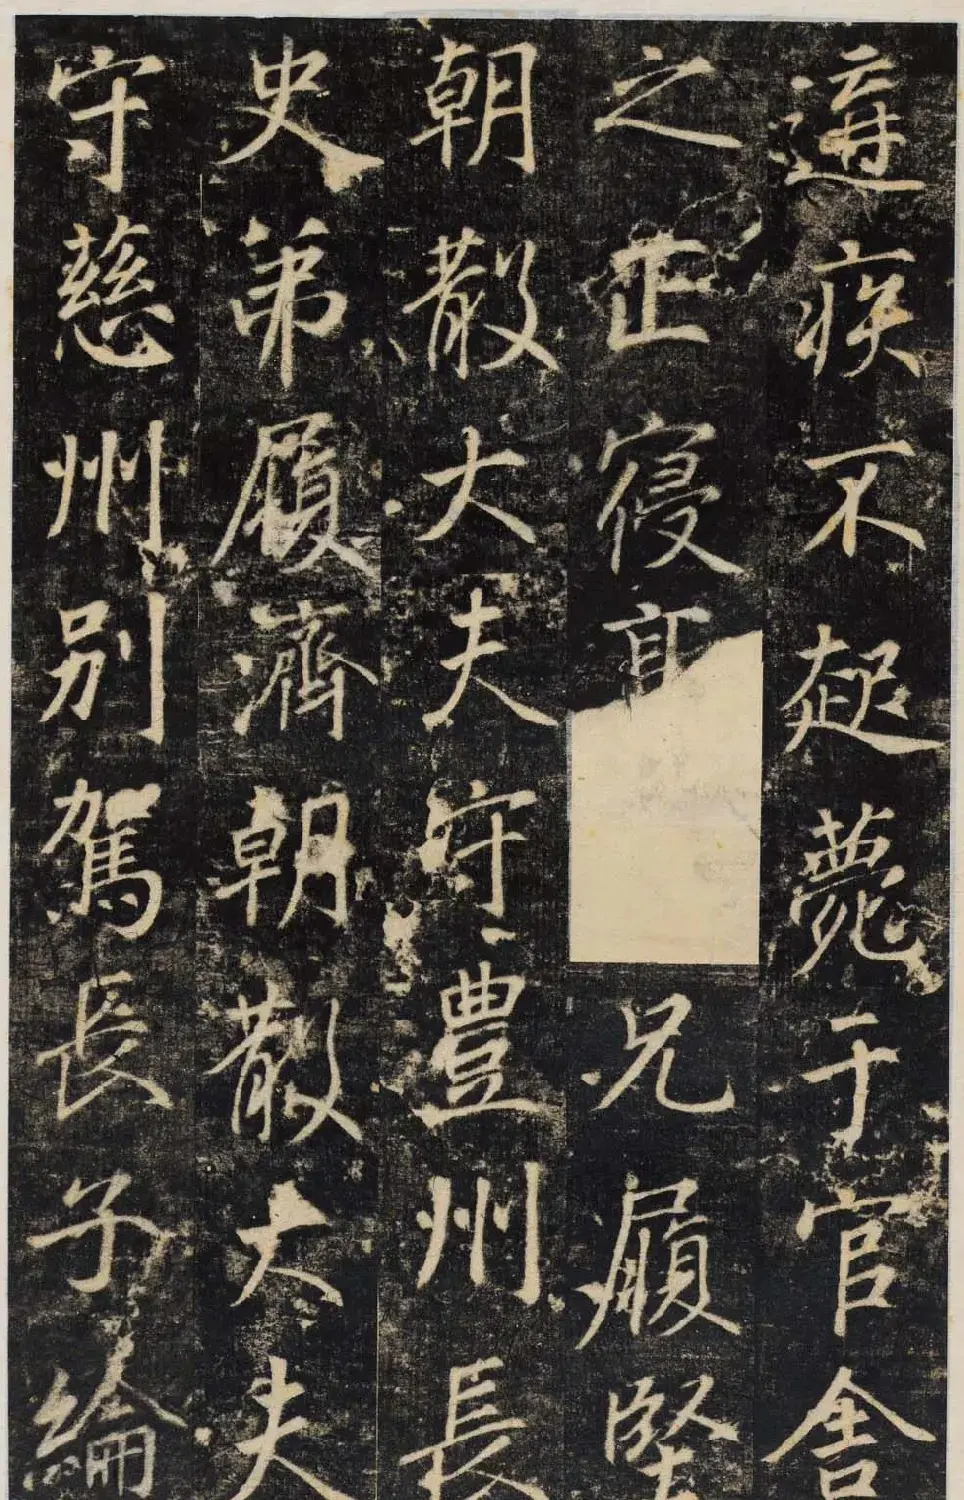 遘疾不起薨于官舍
之正寝享兄履堅
朝散大夫守豊州長
史弟履濟朝散大夫
守慈州别駕長子綸